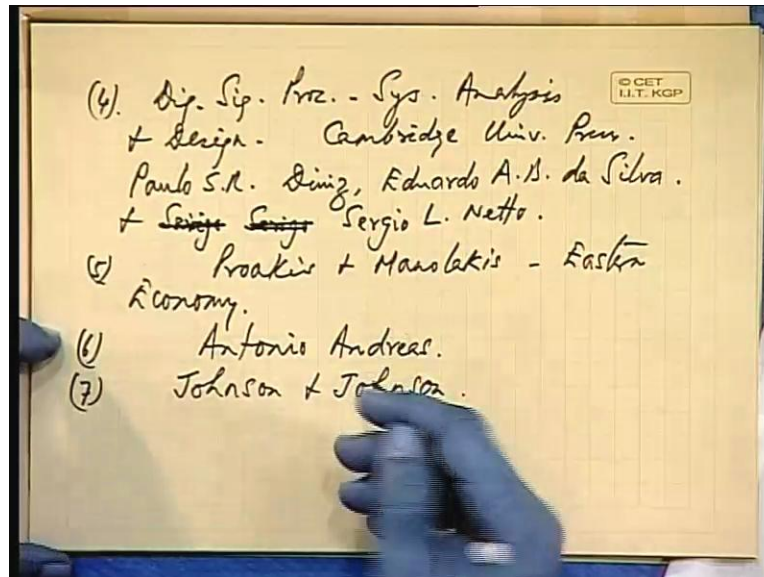 © CET
I.I.T. KGP
(4). Dig. Sig. Proc. - Sys. Analysis
+ Design. Cambridge Univ. Press.
Paulo S.R. Diniz, Eduardo A.B. da Silva.
+ Sergio L. Netto.
(5) Proakis + Manolakis - Eastern
Economy.
(6) Antonio Andreas.
(7) Johnson + Johnson.